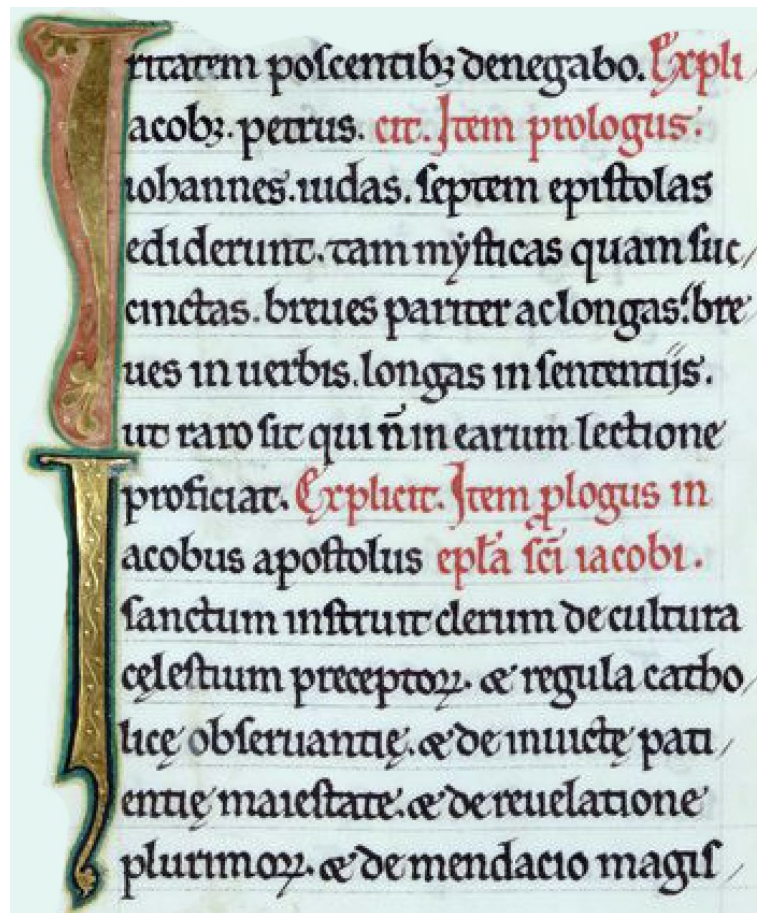 ritatem poſcentibꝫ denegabo. Expli
Iacobꝫ. petrus. cit. Item prologus.
iohannes. iudas. ſeptem epiſtolas
ediderunt. tam mẏſticas quam ſuc
cinctas. breues pariter ac longas. bre
ues in uerbis. longas in ſententijs.
ut raro ſit qui n̄ in earum lectione
proficiat. Explicit. Item ꝓlogus in
Iacobus apoſtolus ep̄ła ſc̄i iacobi.
ſanctum inſtruit clerum de cultura
cęleſtium preceptoꝝ. & regula catho
licę obſeruantię. & de inuictę pati
entię maieſtate. & de reuelatione
plurimoꝝ. & de mendacio magiſ